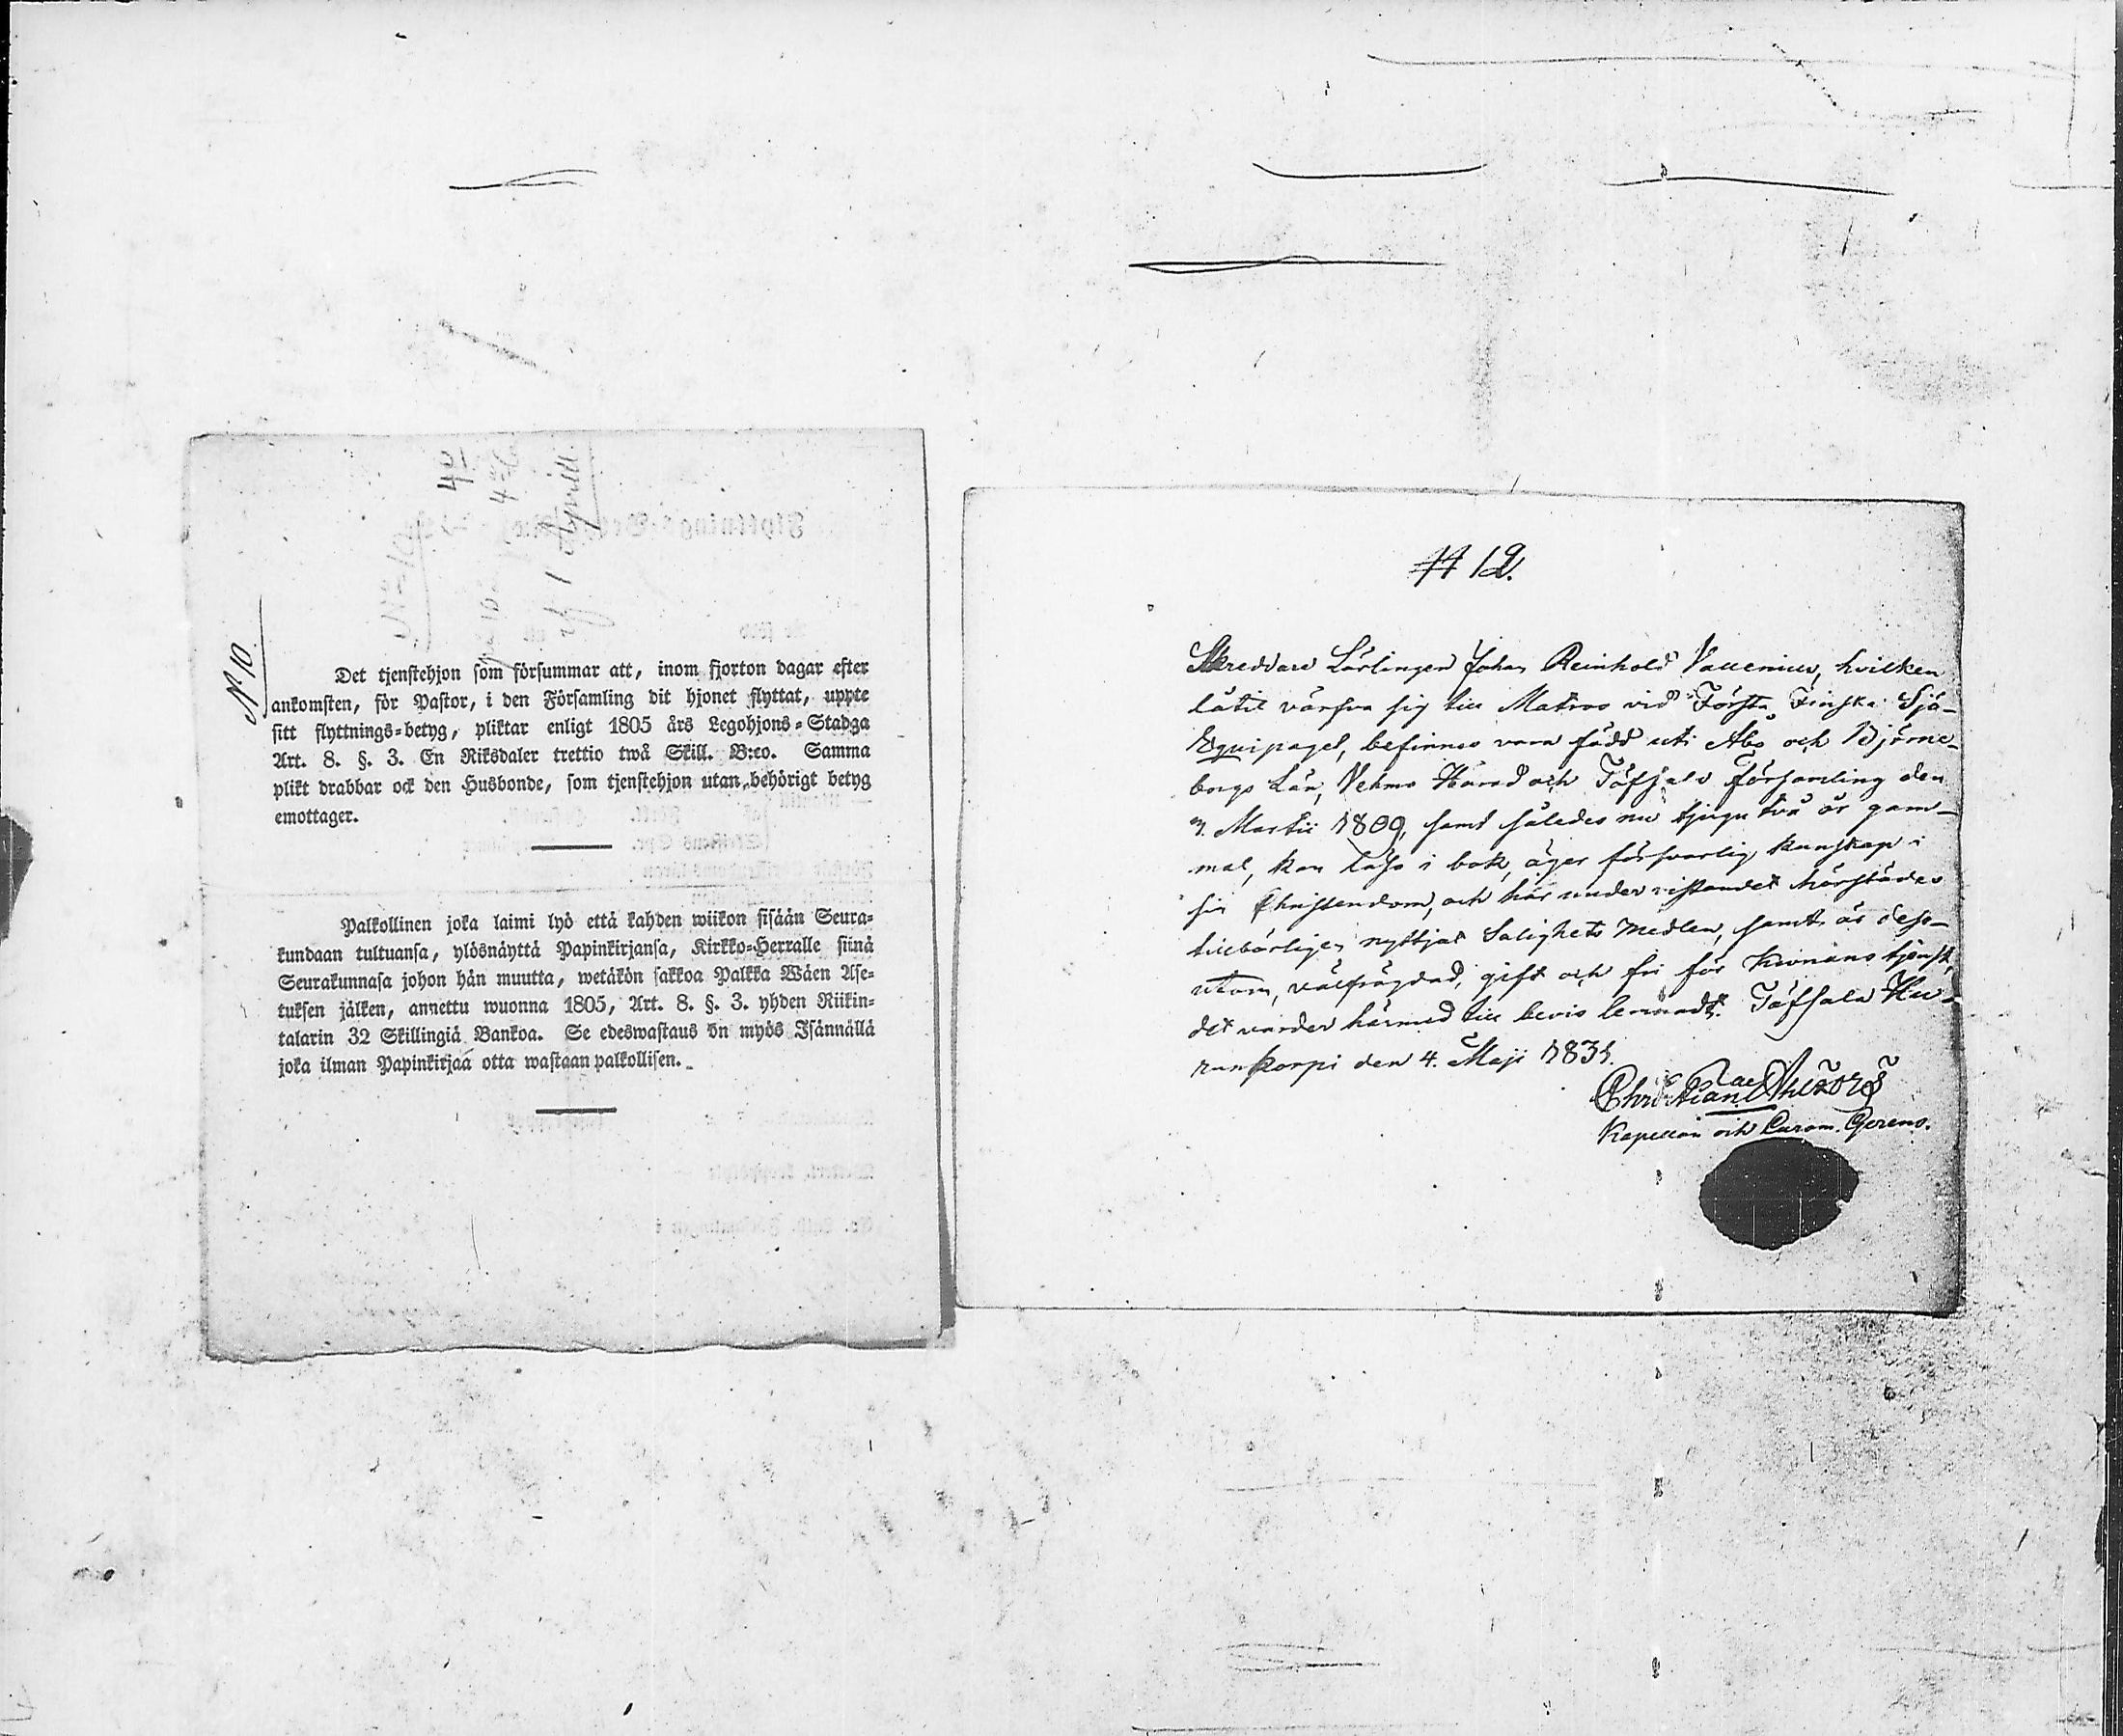 N 10.
Det tjenstehjon som försummar att, inom fjorton dagar efter
ankomsten, för Pastor, i den Församling dit hjonet flyttat, uppte
sitt flyttnings-betyg, pliktar enligt 1805 års Legohjons-Stadga
Art. 8. §. 3. En Riksdaler trettio twå Skill. B:co. Samma
plikt drabbar ock den Husbonde, som tjenstehjon utan behörigt betyg
emottager.
Palkollinen joka laimi lyö että kahden wiikon sisään Seura-
kundaan tultuansa, ylösnäyttä Papinkirjansa, Kirkko-Herralle siinä
Seurakunnasa johon hän muutta, wetäkön sakkoa Palkka Wäen Ase-
tuksen jälken, annettu wuonna 1805, Art. 8. §. 3. yhden Riikin-
talarin 32 Skillingiä Bankoa. Se edeswastaus on myös Isännällä
joka ilman Papinkirjaa otta wastaan palkollisen.
12.
Skreddare Lärlingen Johan Reinhold Vallenius, hvilken
låtit värfva sig till Matros vid Första Finska Sjö-
Equipaget, befinnes vara född uti Åbo och Björne-
borgs Län, Vehmo Härad och Töfsala Församling den
Martii 1809, samt således nu tjugu två år gam-
mal, kan läsa i bok, äger försvarlig kunskap i
sin Christendom, och har under vistandet härstädes
tillbörligen nyttjat Salighets Medlen, samt är dess-
utom, välfrägdad, gift och fri för kronans tjenst,
det varder härmed till bevis lemnadt. Töfsala Hu-
runkorpi den 4. Maji 1831.
Christian
Kapellan och Curam. Gerens.